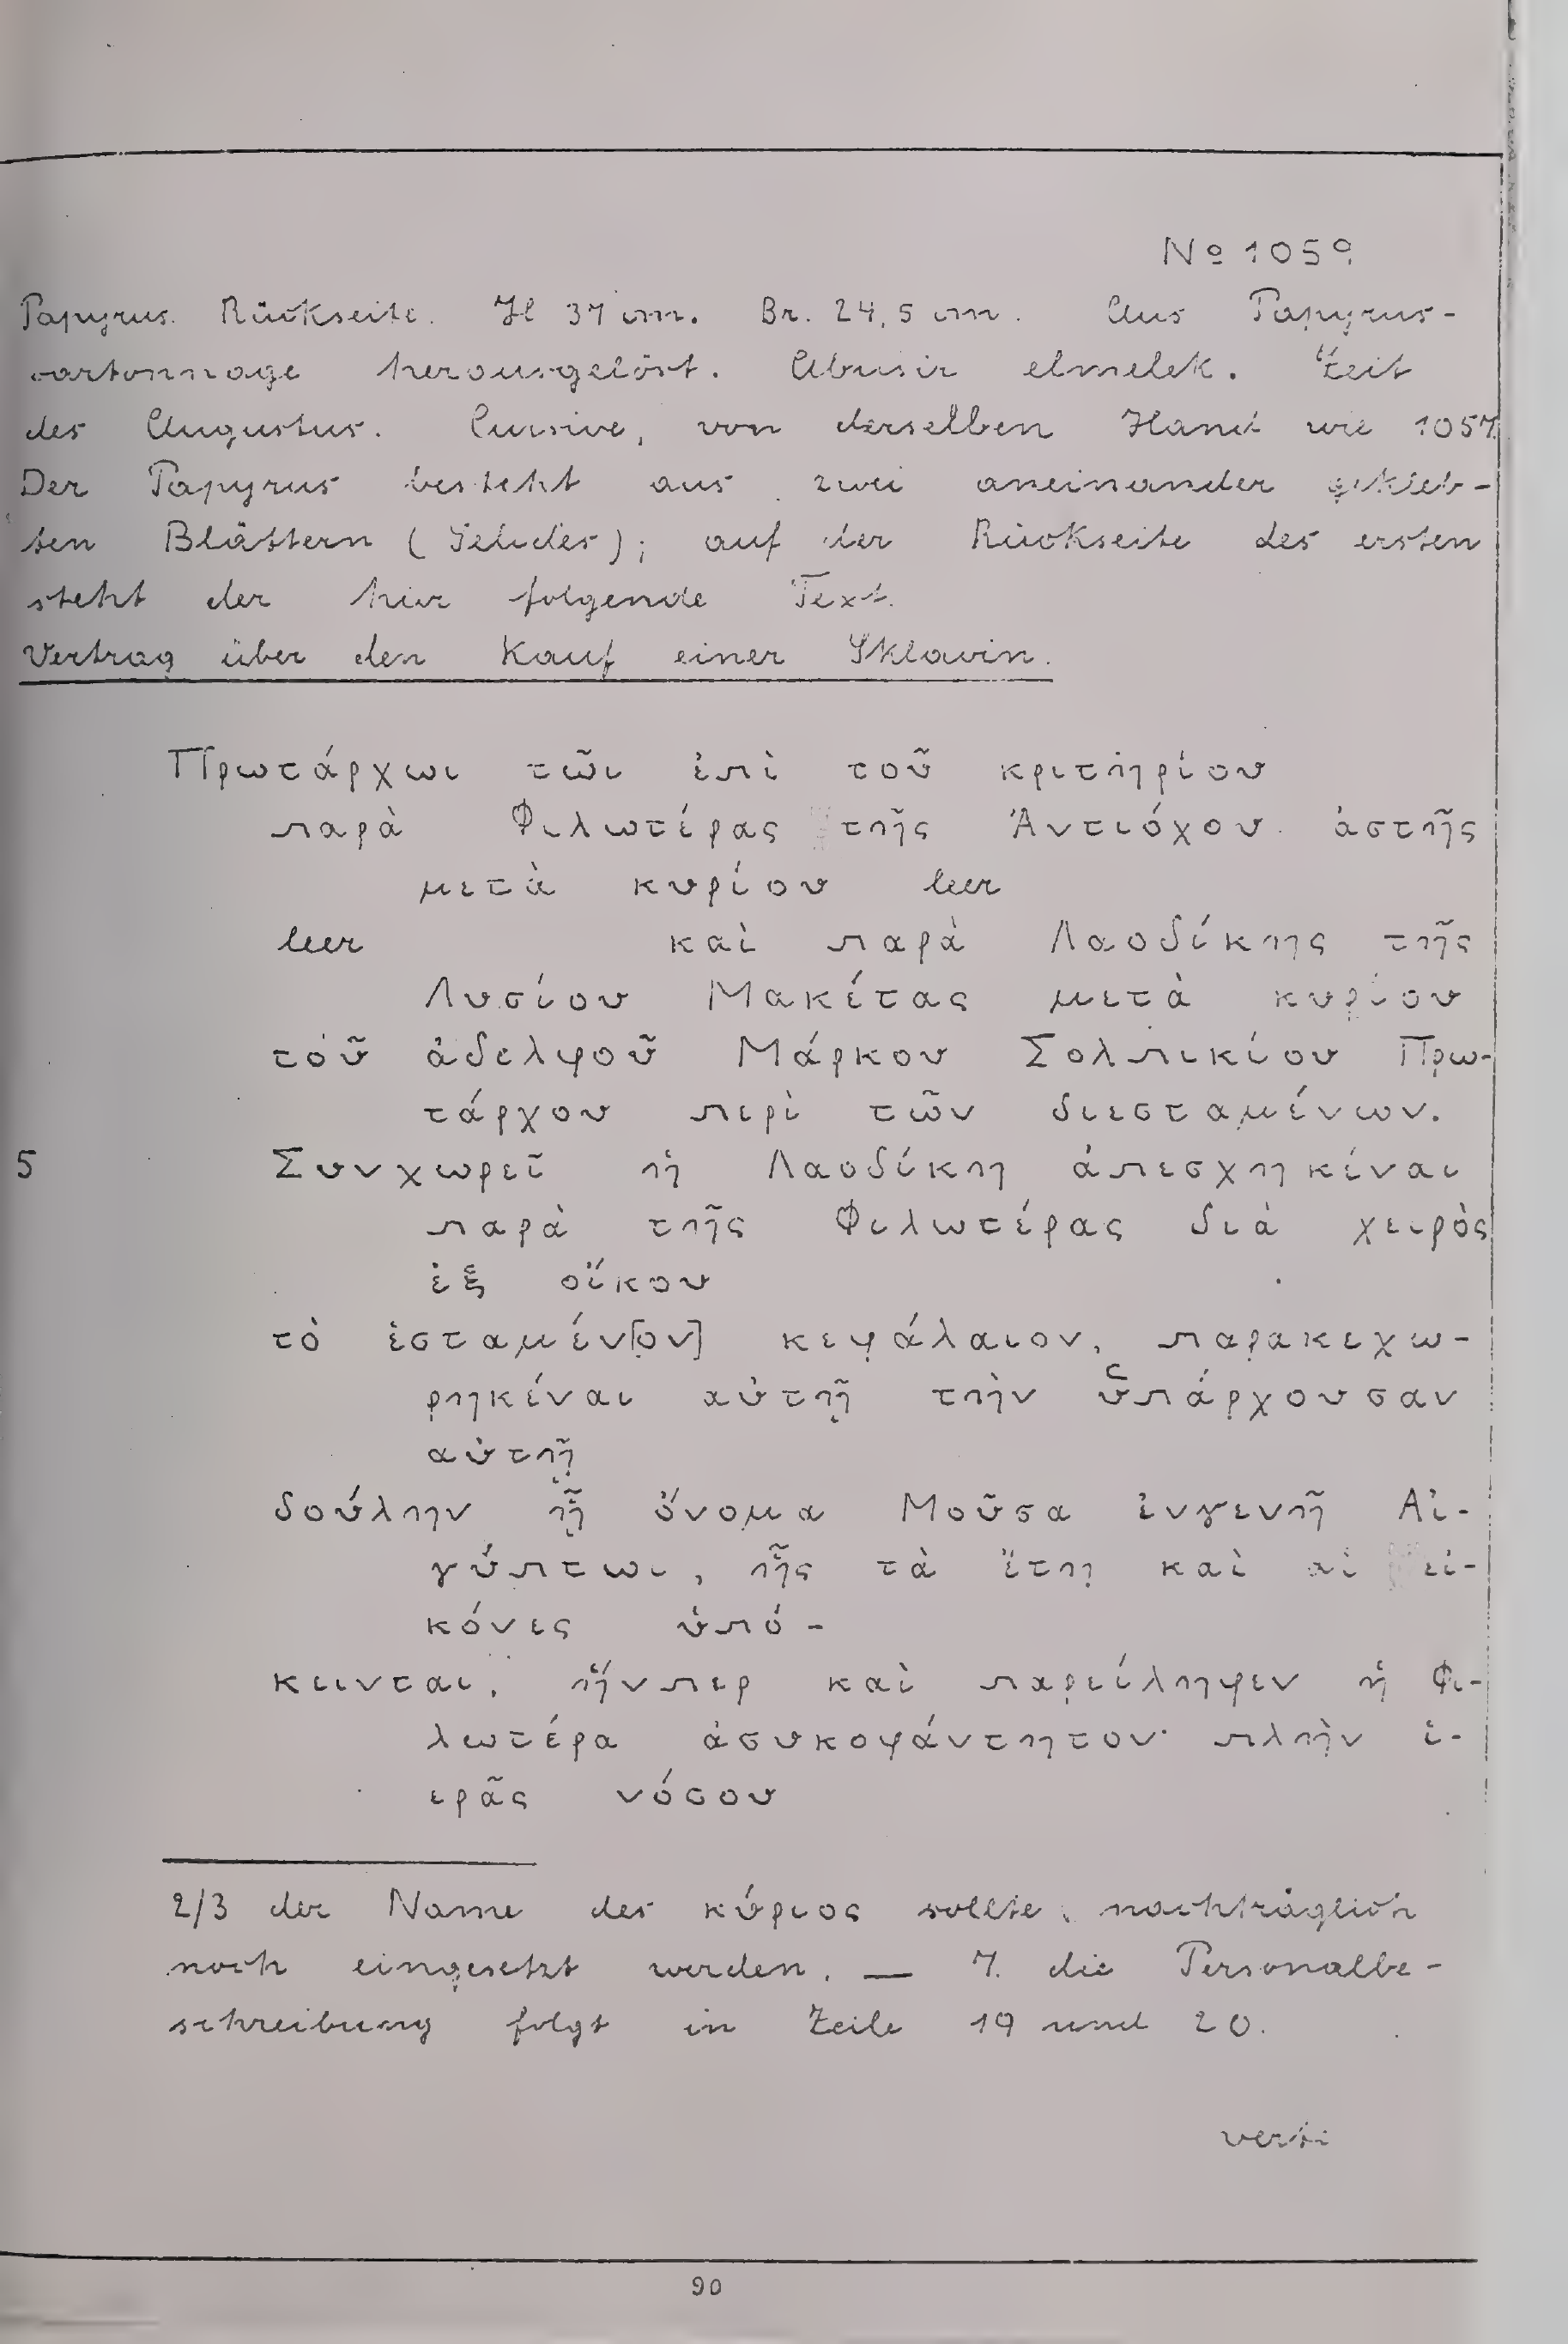 No 1059
Papyrus. Rückseite. H 37 cm. Br. 24,5 cm. Aus Papyrus-
cartonnage herausgelöst. Abusir elmelek. Zeit
des Augustus. Cursive, von derselben Hand wie 1057.
Der Papyrus besteht aus zwei aneinander gekleb-
ten Blättern (Selides); auf der Rückseite des ersten
steht der hier folgende Text.
Vertrag über den Kauf einer Sklavin.
Πρωτάρχωι τῶι ἐπὶ τοῦ κριτηρίου
παρὰ Φιλωτέρας τῆς Ἀντιόχου ἀστῆς
μετὰ κυρίου leer
leer καὶ παρὰ Λαοδίκης τῆς
Λυσίου Μακέτας μετὰ κυρίου
τοῦ ἀδελφοῦ Μάρκου Σολπικίου Πρω-
τάρχου περὶ τῶν διεσταμένων.
5 Συνχωρεῖ ἡ Λαοδίκη ἀπεσχηκέναι
παρὰ τῆς Φιλωτέρας διὰ χειρὸς
ἐξ οἴκου
τὸ ἑσταμέν[ον] κεφάλαιον, παρακεχω-
ρηκέναι αὐτῇ τὴν ὑπάρχουσαν
αὐτῇ
δούλην ᾗ ὄνομα Μοῦσα ἐνγενῆ Αἰ-
γύπτωι, ἧς τὰ ἔτη καὶ αἱ εἰ-
κόνες ὑπό-
κεινται, ἥνπερ καὶ παρείληφεν ἡ Φι-
λωτέρα ἀσυκοφάντητον πλὴν ἱ-
ερᾶς νόσου
2/3 der Name des κύριος sollte nachträglich
noch eingesetzt werden. — 7. die Personalbe-
schreibung folgt in Zeile 19 und 20.
verti
90